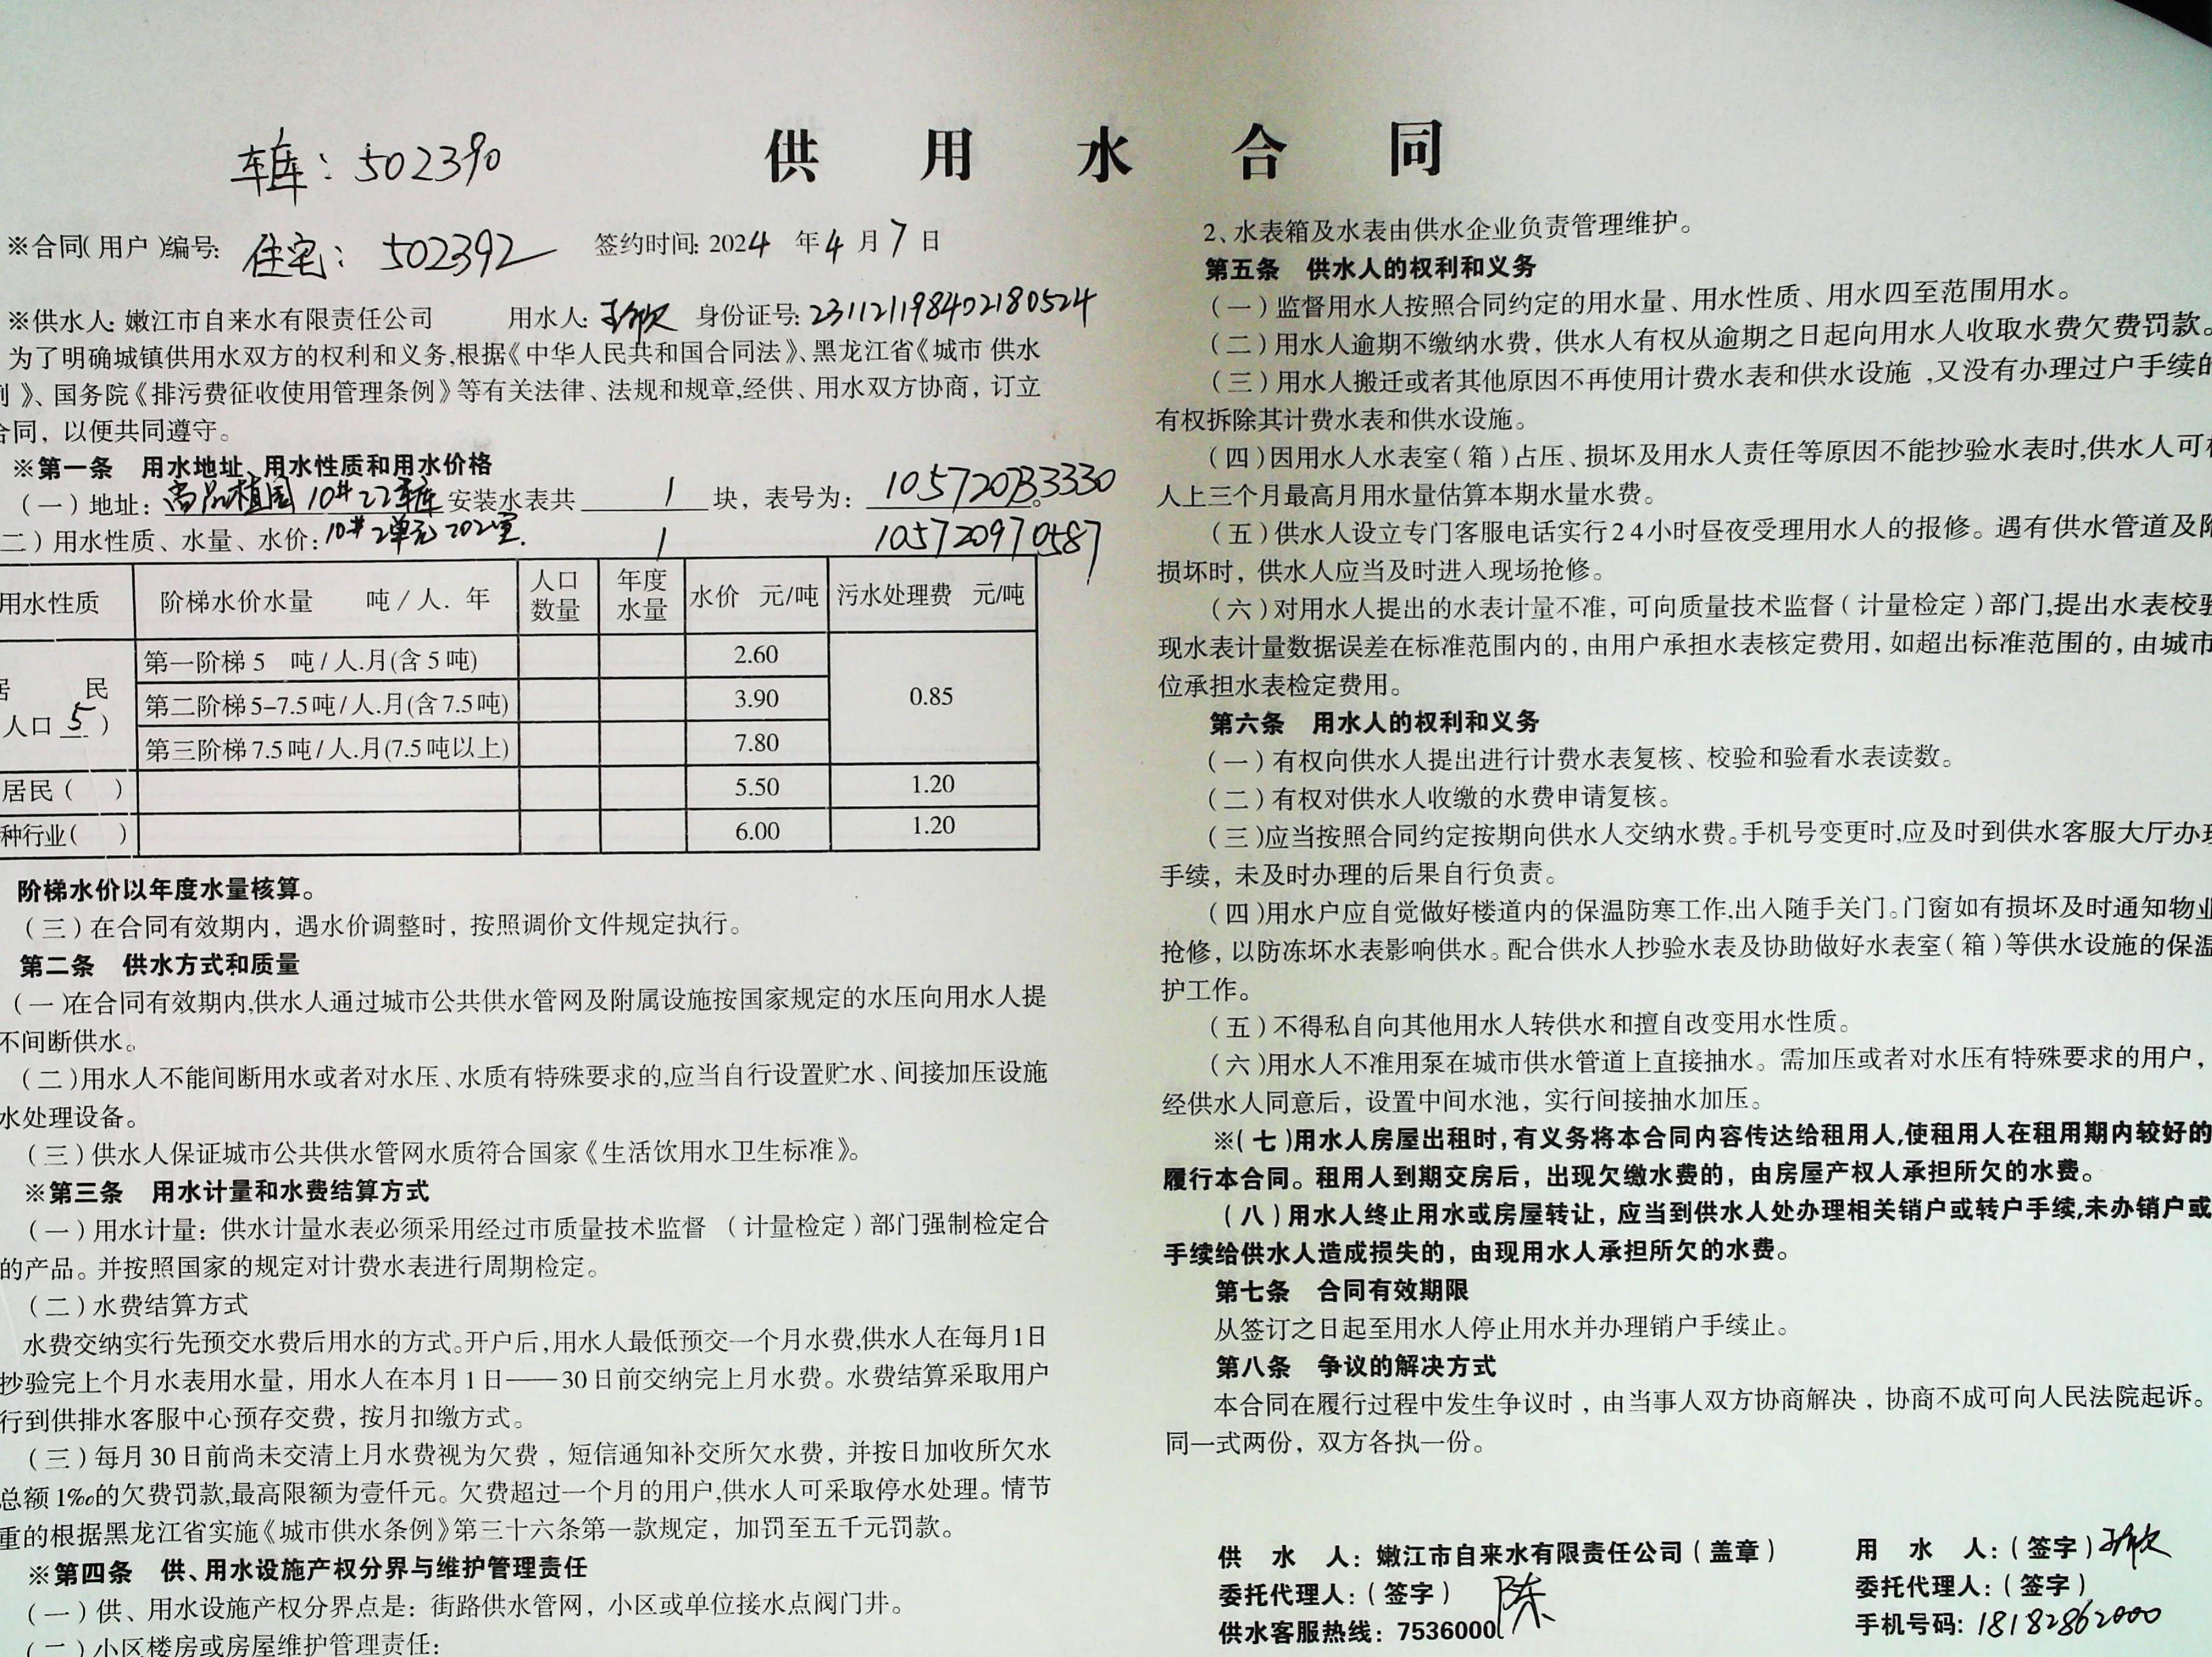 供用水合同
车库：502390
※合同(用户)编号：住宅：502392 签约时间：2024年4月7日
※供水人：嫩江市自来水有限责任公司 用水人： 身份证号：231121198402180524
为了明确城镇供用水双方的权利和义务,根据《中华人民共和国合同法》、黑龙江省《城市供水
》、国务院《排污费征收使用管理条例》等有关法律、法规和规章,经供、用水双方协商，订立
合同，以便共同遵守。
※第一条 用水地址、用水性质和用水价格
（一）地址：尚品植园10#22车库安装水表共1块，表号为：105720333330。
二）用水性质、水量、水价：10#2单元202室. 1 105720970587
用水性质 阶梯水价水量 吨/人.年 人口数量 年度水量 水价 元/吨 污水处理费 元/吨
居民 人口5） 第一阶梯5 吨/人.月(含5吨) 2.60 0.85
第二阶梯5-7.5吨/人.月(含7.5吨) 3.90
第三阶梯7.5吨/人.月(7.5吨以上) 7.80
居民（ ） 5.50 1.20
种行业（ ） 6.00 1.20
阶梯水价以年度水量核算。
（三）在合同有效期内，遇水价调整时，按照调价文件规定执行。
第二条 供水方式和质量
（一）在合同有效期内,供水人通过城市公共供水管网及附属设施按国家规定的水压向用水人提
不间断供水。
（二）用水人不能间断用水或者对水压、水质有特殊要求的,应当自行设置贮水、间接加压设施
水处理设备。
（三）供水人保证城市公共供水管网水质符合国家《生活饮用水卫生标准》。
※第三条 用水计量和水费结算方式
（一）用水计量：供水计量水表必须采用经过市质量技术监督（计量检定）部门强制检定合
的产品。并按照国家的规定对计费水表进行周期检定。
（二）水费结算方式
水费交纳实行先预交水费后用水的方式。开户后,用水人最低预交一个月水费,供水人在每月1日
抄验完上个月水表用水量，用水人在本月1日——30日前交纳完上月水费。水费结算采取用户
行到供排水客服中心预存交费，按月扣缴方式。
（三）每月30日前尚未交清上月水费视为欠费，短信通知补交所欠水费，并按日加收所欠水
总额1‰的欠费罚款,最高限额为壹仟元。欠费超过一个月的用户,供水人可采取停水处理。情节
重的根据黑龙江省实施《城市供水条例》第三十六条第一款规定，加罚至五千元罚款。
※第四条 供、用水设施产权分界与维护管理责任
（一）供、用水设施产权分界点是：街路供水管网，小区或单位接水点阀门井。
（二）小区楼房或房屋维护管理责任：
2、水表箱及水表由供水企业负责管理维护。
第五条 供水人的权利和义务
（一）监督用水人按照合同约定的用水量、用水性质、用水四至范围用水。
（二）用水人逾期不缴纳水费，供水人有权从逾期之日起向用水人收取水费欠费罚款。
（三）用水人搬迁或者其他原因不再使用计费水表和供水设施,又没有办理过户手续的
有权拆除其计费水表和供水设施。
（四）因用水人水表室（箱）占压、损坏及用水人责任等原因不能抄验水表时,供水人可
人上三个月最高月用水量估算本期水量水费。
（五）供水人设立专门客服电话实行24小时昼夜受理用水人的报修。遇有供水管道及附
损坏时，供水人应当及时进入现场抢修。
（六）对用水人提出的水表计量不准，可向质量技术监督（计量检定）部门,提出水表校验
现水表计量数据误差在标准范围内的，由用户承担水表核定费用，如超出标准范围的，由城市
位承担水表检定费用。
第六条 用水人的权利和义务
（一）有权向供水人提出进行计费水表复核、校验和验看水表读数。
（二）有权对供水人收缴的水费申请复核。
（三）应当按照合同约定按期向供水人交纳水费。手机号变更时,应及时到供水客服大厅办理
手续，未及时办理的后果自行负责。
（四）用水户应自觉做好楼道内的保温防寒工作,出入随手关门。门窗如有损坏及时通知物业
抢修，以防冻坏水表影响供水。配合供水人抄验水表及协助做好水表室（箱）等供水设施的保温
护工作。
（五）不得私自向其他用水人转供水和擅自改变用水性质。
（六）用水人不准用泵在城市供水管道上直接抽水。需加压或者对水压有特殊要求的用户，
经供水人同意后，设置中间水池，实行间接抽水加压。
※（七）用水人房屋出租时，有义务将本合同内容传达给租用人,使租用人在租用期内较好的
履行本合同。租用人到期交房后，出现欠缴水费的，由房屋产权人承担所欠的水费。
（八）用水人终止用水或房屋转让，应当到供水人处办理相关销户或转户手续,未办销户或
手续给供水人造成损失的，由现用水人承担所欠的水费。
第七条 合同有效期限
从签订之日起至用水人停止用水并办理销户手续止。
第八条 争议的解决方式
本合同在履行过程中发生争议时，由当事人双方协商解决，协商不成可向人民法院起诉。
同一式两份，双方各执一份。
供水人：嫩江市自来水有限责任公司（盖章） 用水人：（签字）
委托代理人：（签字）陈 委托代理人：（签字）
供水客服热线：7536000 手机号码：18182862000